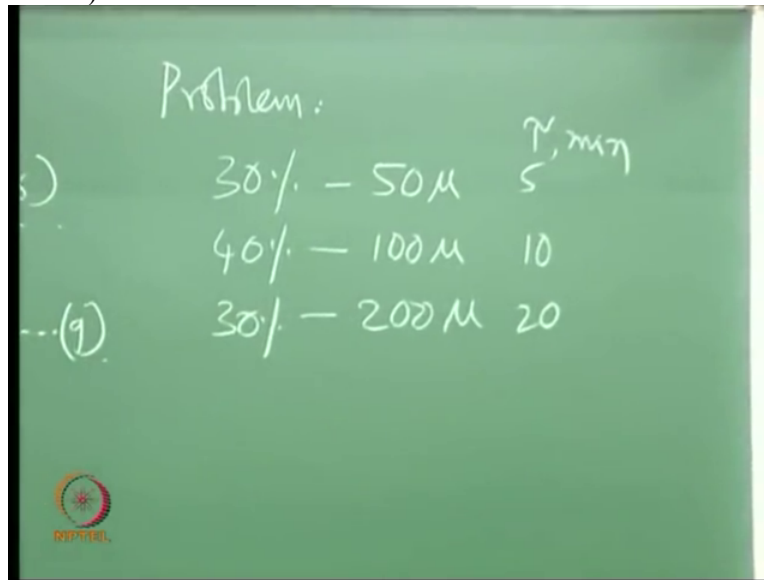 Problem:
τ, min
s)
30% – 50 μ 5
40% – 100 μ 10
---(9)
30% – 200 μ 20
NPTEL